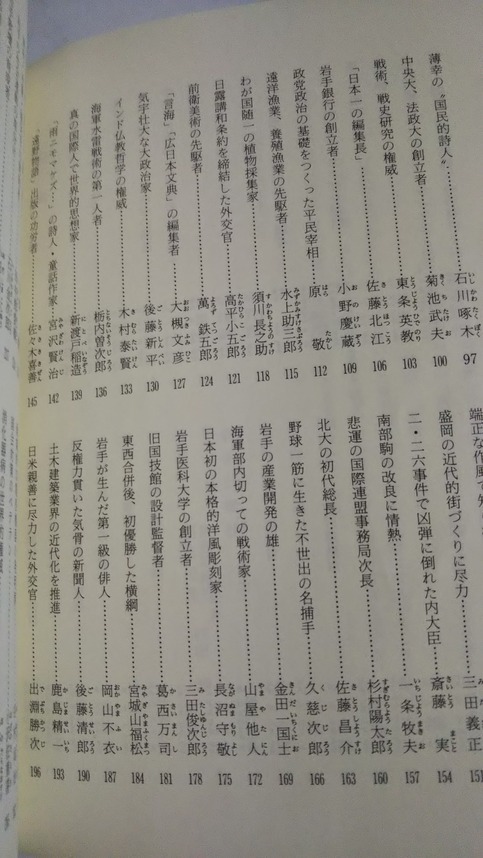 薄幸の〝国民的詩人〟……石川啄木 97
中央大、法政大の創立者……菊池武夫 100
戦術、戦史研究の権威……東条英教 103
「日本一の編集長」……佐藤北江 106
岩手銀行の創立者……小野慶蔵 109
政党政治の基礎をつくった平民宰相……原 敬 112
遠洋漁業、養殖漁業の先駆者……水上助三郎 115
わが国随一の植物採集家……須川長之助 118
日露講和条約を締結した外交官……高平小五郎 121
前衛美術の先駆者……萬 鉄五郎 124
「言海」「広日本文典」の編集者……大槻文彦 127
気宇壮大な大政治家……後藤新平 130
インド仏教哲学の権威……木村泰賢 133
海軍水雷戦術の第一人者……栃内曽次郎 136
真の国際人で世界的思想家……新渡戸稲造 139
「雨ニモマケズ…」の詩人・童話作家……宮沢賢治 142
「遠野物語」出版の功労者……佐々木喜善 145
三田義正 151
盛岡の近代的街づくりに尽力
二・二六事件で凶弾に倒れた内大臣……斎藤 実 154
南部駒の改良に情熱……一条牧夫 157
悲運の国際連盟事務局次長……杉村陽太郎 160
北大の初代総長……佐藤昌介 163
野球一筋に生きた不世出の名捕手……久慈次郎 166
岩手の産業開発の雄……金田一国士 169
海軍部内切っての戦術家……山屋他人 172
日本初の本格的洋風彫刻家……長沼守敬 175
岩手医科大学の創立者……三田俊次郎 178
旧国技館の設計監督者……葛西万司 181
東西合併後、初優勝した横綱……宮城山福松 184
岩手が生んだ第一級の俳人……岡山不衣 187
反権力貫いた気骨の新聞人……後藤清郎 190
土木建築業界の近代化を推進……鹿島精一 193
日米親善に尽力した外交官……出淵勝次 196